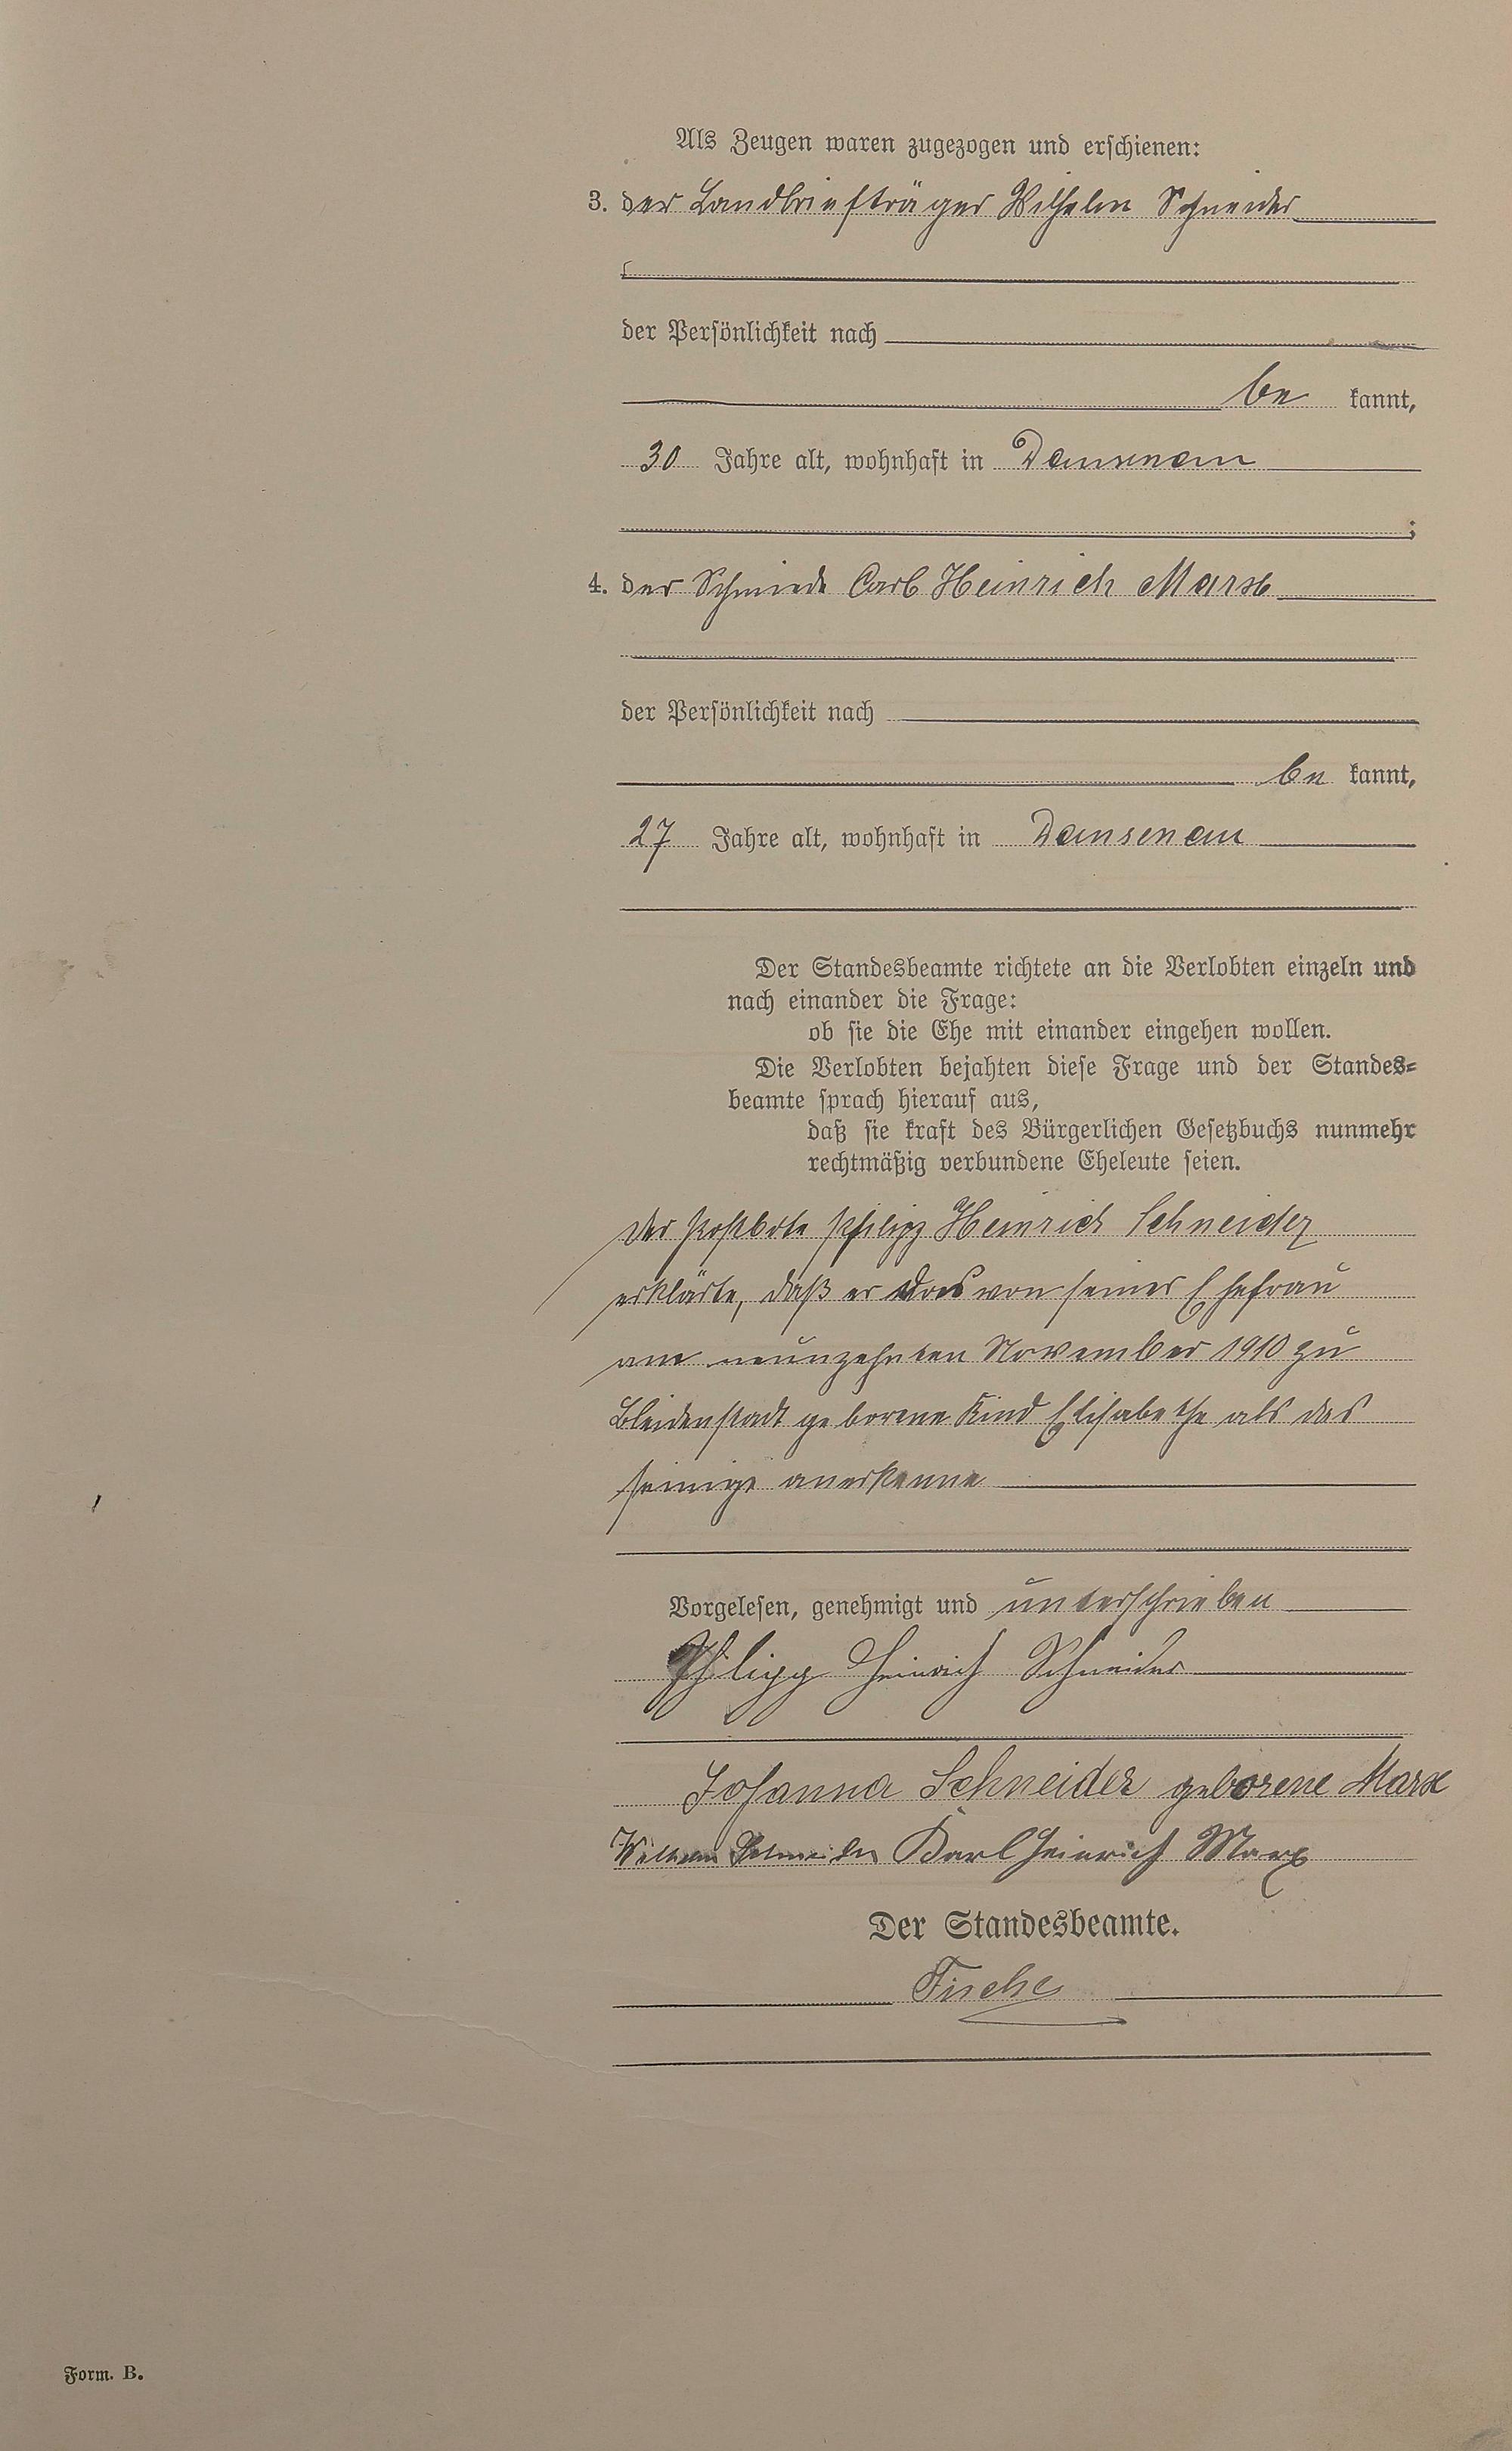 Als Zeugen waren zugezogen und erschienen:
3. der Landbriefträger Wilhelm Schneider
der Persönlichkeit nach
be kannt,
30 Jahre alt, wohnhaft in Dausenau
;
4. der Schmied Carl Heinrich Marx
der Persönlichkeit nach
be kannt,
27 Jahre alt, wohnhaft in Dausenau
Der Standesbeamte richtete an die Verlobten einzeln und
nach einander die Frage:
ob sie die Ehe mit einander eingehen wollen.
Die Verlobten bejahten diese Frage und der Standes=
beamte sprach hierauf aus,
daß sie kraft des Bürgerlichen Gesetzbuchs nunmehr
rechtmäßig verbundene Eheleute seien.
Der Postbote Philipp Heinrich Schneider
erklärte, daß er das von seiner Ehefrau
am neunzehnten November 1910 zu
Bleidenstadt geborene Kind Elisabethe als das
seinige anerkenne
Vorgelesen, genehmigt und unterschrieben
Philipp Heinrich Schneider
Johanna Schneider geborene Marx
Wilhelm Schneider Karl Heinrich Marx
Der Standesbeamte.
Form. B.